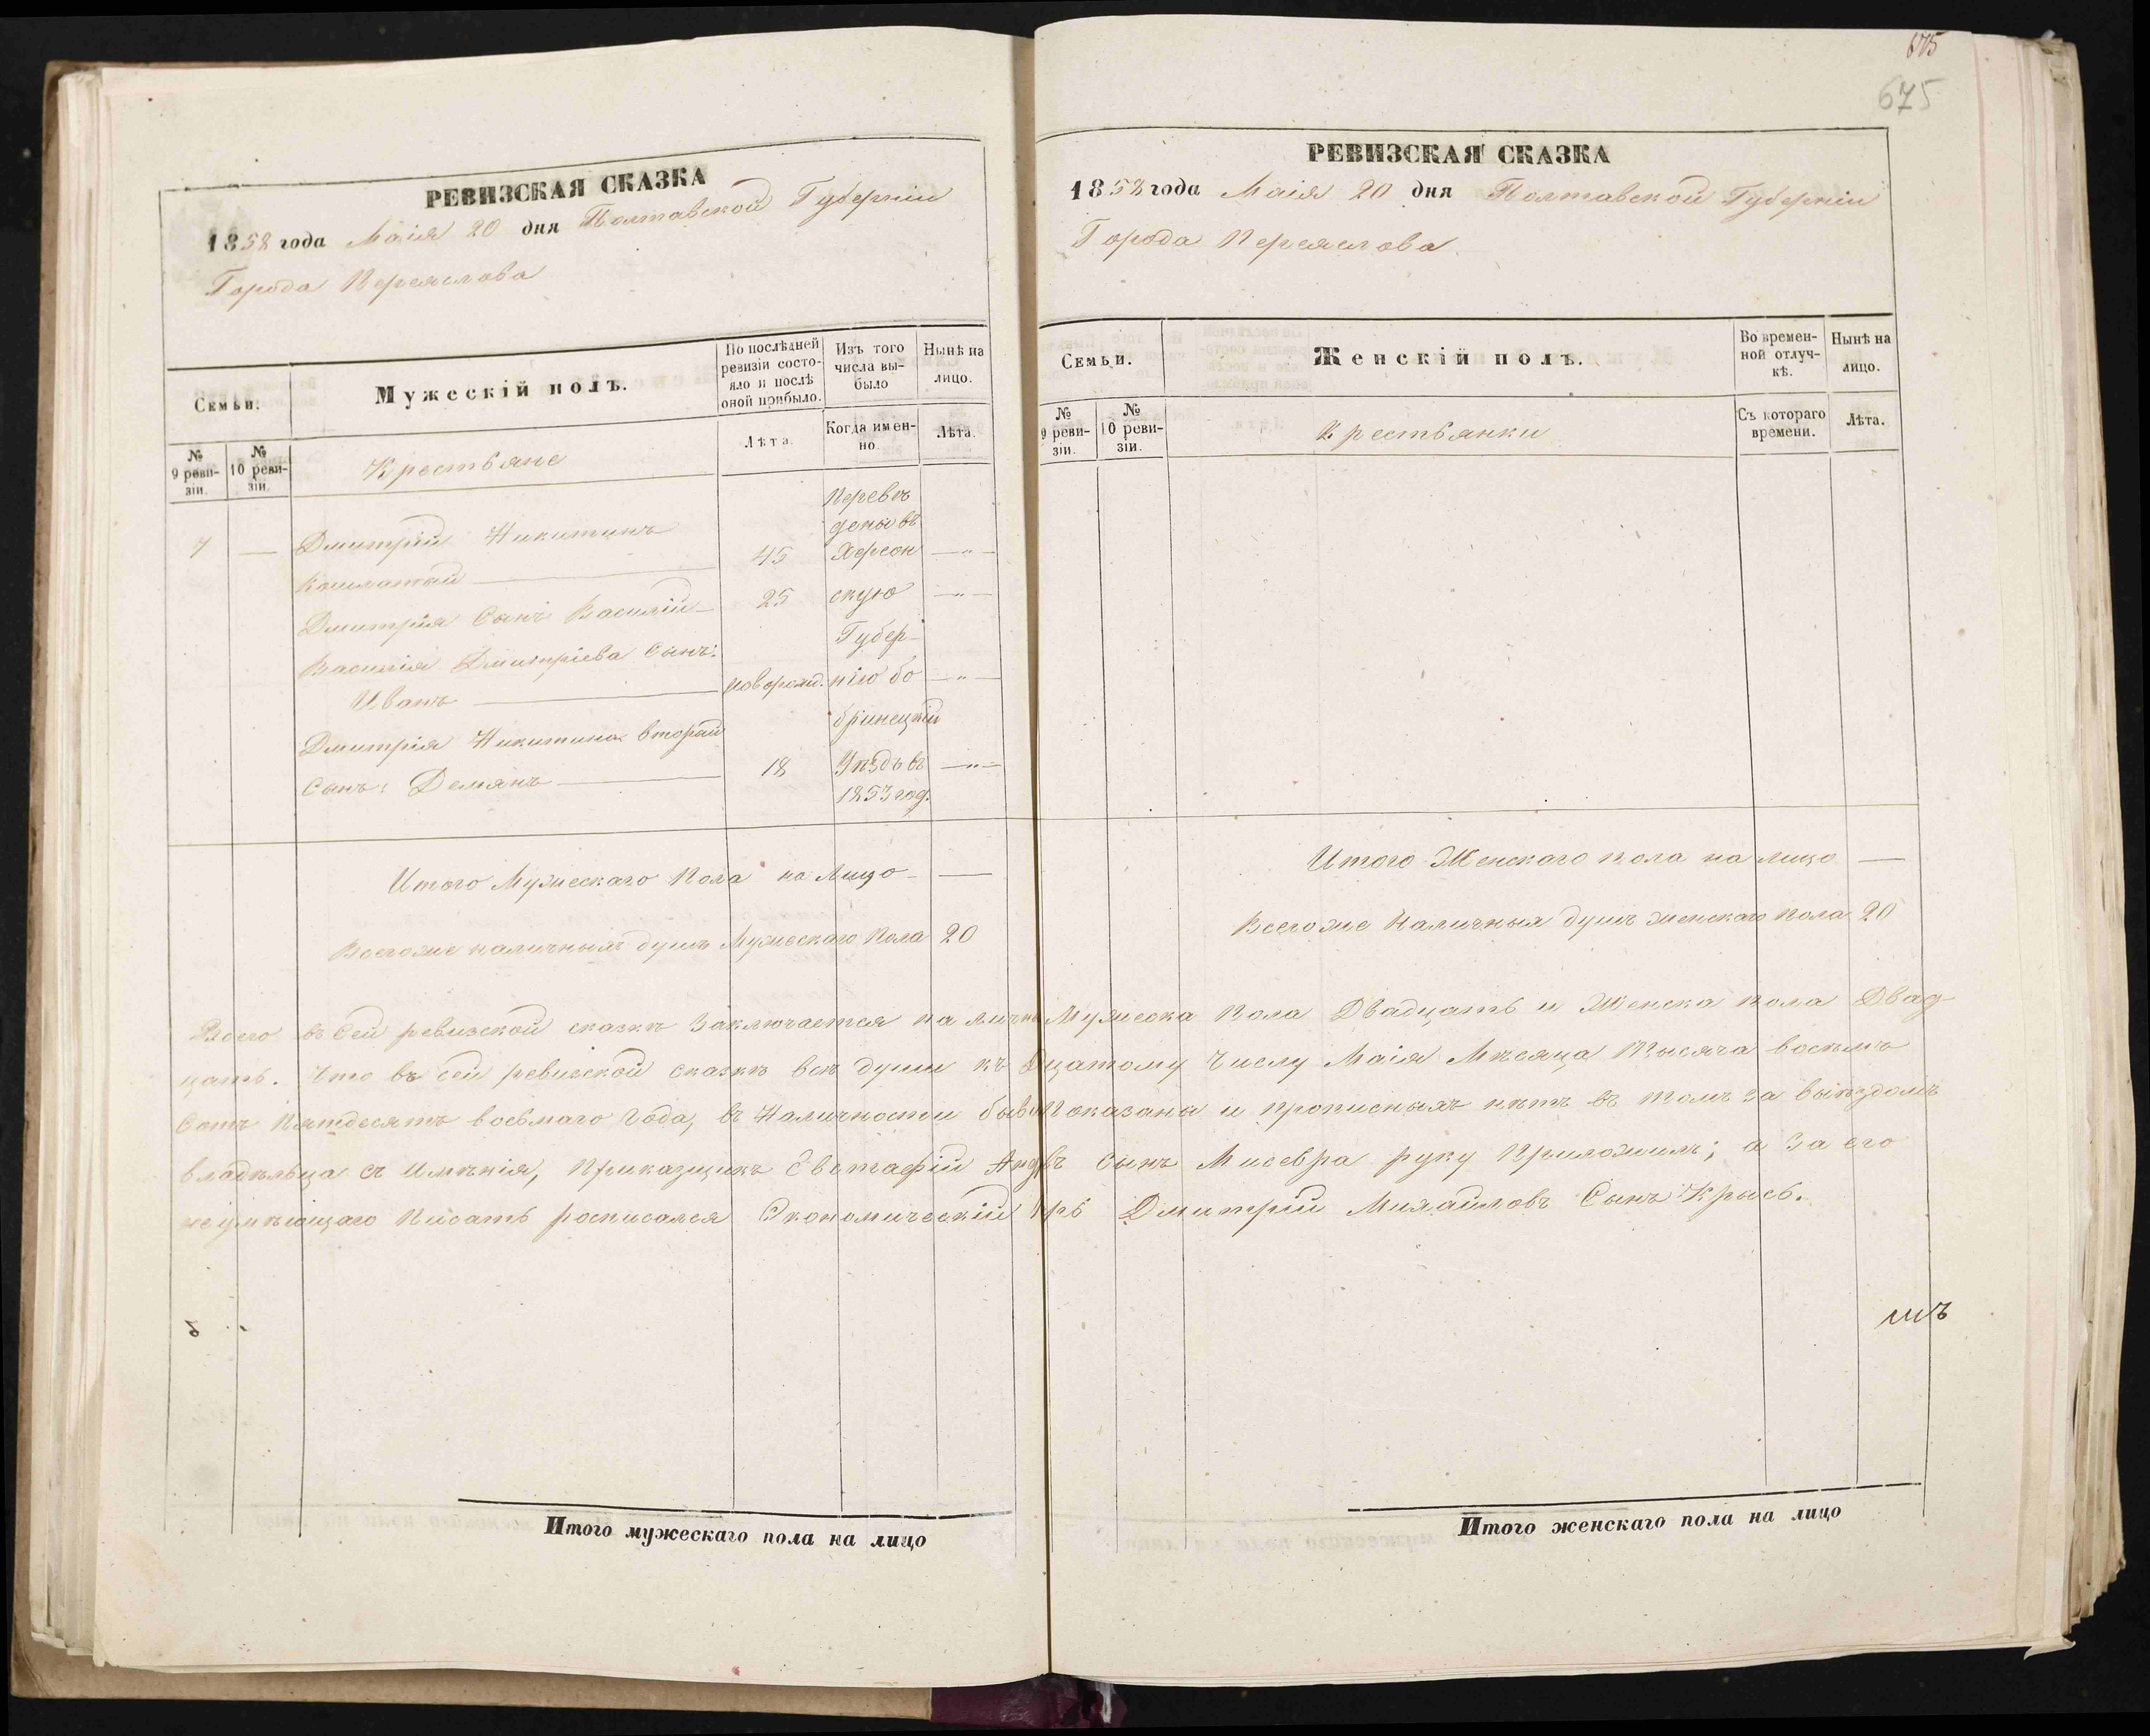 675
675
РЕВИЗСКАЯ СКАЗКА
1858 года Маія 20 дня Полтавской Губерніи
Города Переяслова
Семьи.
Мужескій полъ.
По послѣдней ревизіи состо-
яло и послѣ оной прибыло.
Изъ того числа вы-
было
Нынѣ на лицо.
№ 9 реви-
зіи.
№ 10 реви-
зіи.
Крестьяне
Лѣта.
Когда имен-
но.
Лѣта.
7 — Дмитрій Никитинъ
Кошлатый — 45 —"—
Дмитрія Сынъ Василій — 25 —"—
Василія Дмитріева Сынъ:
Иванъ — новорожд. —"—
Дмитрія Никитина вторый
Сынъ: Демянъ — 18 —"—
Переве
дены въ
Херсон
скую
Губер-
нію бо
бринецкій
Уѣздъ въ
1853 год.
Итого Мужескаго Пола на Лицо — —
Всегоже наличныхъ душъ Мужескаго Пола 20
РЕВИЗСКАЯ СКАЗКА
1858 года Маія 20 дня Полтавской Губерніи
Города Переяслова
Семьи.
Женскій полъ.
Во времен-
ной отлуч-
кѣ.
Нынѣ на лицо.
№ 9 реви-
зіи.
№ 10 реви-
зіи.
Крестьянки
Съ котораго времени.
Лѣта.
Итого Женскаго пола на лицо —
Всегоже Наличныя душъ женскаго пола 20
Всего въ Сей ревизской сказкѣ Заключается на личн Мужеска Пола Двадцать и Женска пола Двад-
цать. Что въ сей ревизской сказкѣ всѣ души къ Дцатому Числу Маія Мѣсяца тысяча восемь
Сотъ Пятдесятъ восьмаго Года, въ Наличности быв Показаны и прописныхъ нѣтъ въ томъ за выѣздомъ
владѣльца съ Имѣнія, Приказщикъ Евстафій Андр въ Сынъ Мисевра руку Приложилъ; а За его
неумѣющаго Писать росписался Экономическій рь Дмитрій Михайловъ Сынъ Крысь.
шъ
Итого мужескаго пола на лицо
Итого женскаго пола на лицо